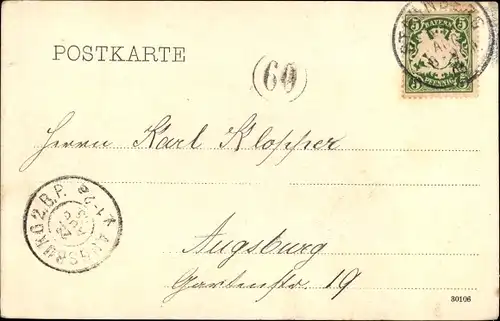 POSTKARTE
5 BAYERN 5
PFENNIG
(60)
Herrn Karl Klopper
AUGSBURG 2. B.P.
Augsburg
Gartenstr. 19
30106